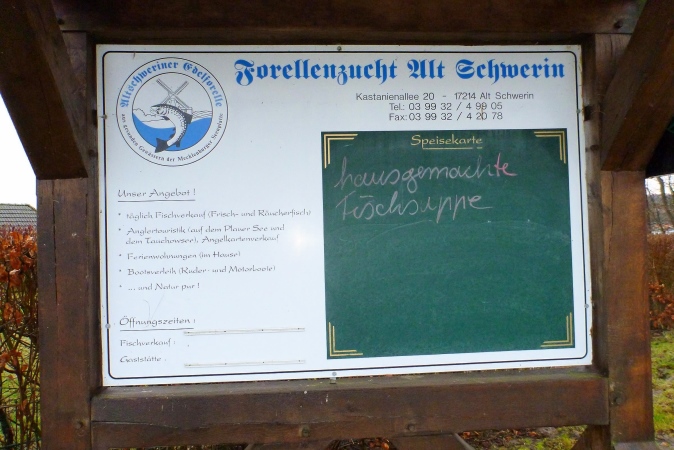 Forellenzucht Alt Schwerin
Altschweriner Edelforelle
Aus gesunden Gewässern der Mecklenburger Seenplatte
Kastanienallee 20 - 17214 Alt Schwerin
Tel.: 03 99 32 / 4 99 05
Fax: 03 99 32 / 4 20 78
Speisekarte
hausgemachte
Fischsuppe
Unser Angebot !
* täglich Fischverkauf (Frisch- und Räucherfisch)
* Anglertouristik (auf dem Plauer See und
dem Tauchowsee), Angelkartenverkauf
* Ferienwohnungen (im Hause)
* Bootsverleih (Ruder- und Motorboote)
* ... und Natur pur !
Öffnungszeiten :
Fischverkauf :
Gaststätte :